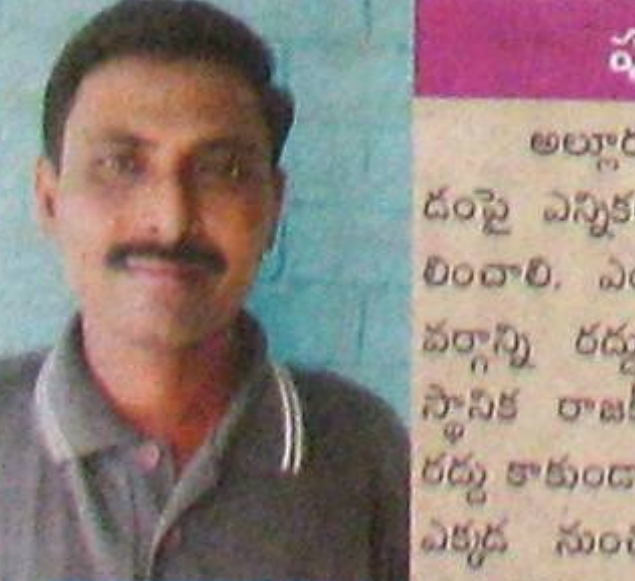 అల్లూర
దంపై ఎన్నిక
లించాలి. ఎం
వర్గాన్ని రద్దు
స్థానిక రాజకీ
రద్దు కాకుండా
ఎక్కడ నుంచ